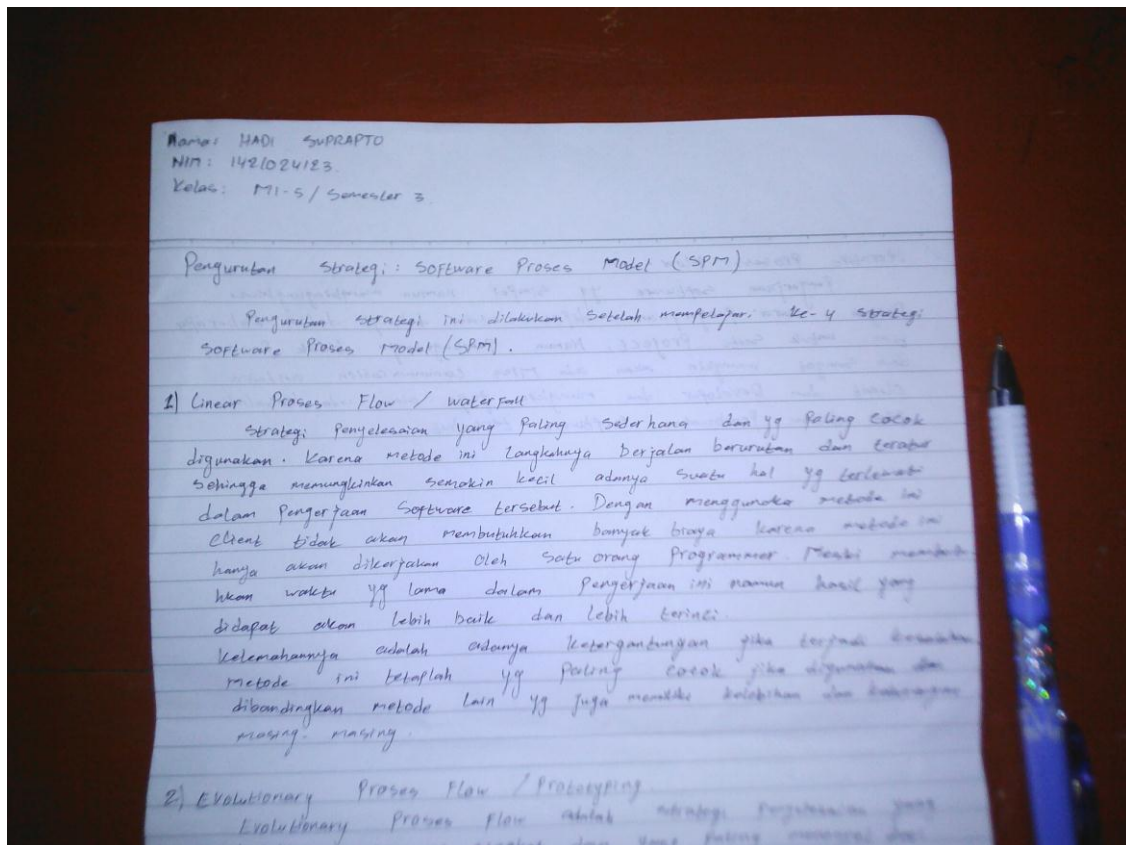 Nama: HADI SUPRAPTO
NIM: 1421024123.
Kelas: MI-5 / Semester 3.
Pengurutan Strategi: Software Proses Model (SPM)
Pengurutan strategi ini dilakukan setelah mempelajari ke-4 strategi
Software Proses Model (SPM).
1) Linear Proses Flow / Waterfall
Strategi penyelesaian yang paling sederhana dan yg paling cocok
digunakan. Karena metode ini langkahnya berjalan berurutan dan teratur
sehingga memungkinkan semakin kecil adanya suatu hal yg terlewati
dalam pengerjaan software tersebut. Dengan menggunaka metode ini
client tidak akan membutuhkan banyak biaya karena metode ini
hanya akan dikerjakan oleh satu orang programmer. Meski
hkan waktu yg lama dalam pengerjaan ini namun hasil yang
didapat akan lebih baik dan lebih terinci.
Kelemahannya adalah adanya ketergantungan jika terjadi kesalahan
metode ini tetaplah yg paling cocok jika digunakan dan
dibandingkan metode lain yg juga memiliki kelebihan dan kekurangan
masing-masing.
2) Evolutionary Proses Flow / Prototyping
Evolutionary Proses Flow adalah strategi penyelesaian yang
dan yang paling